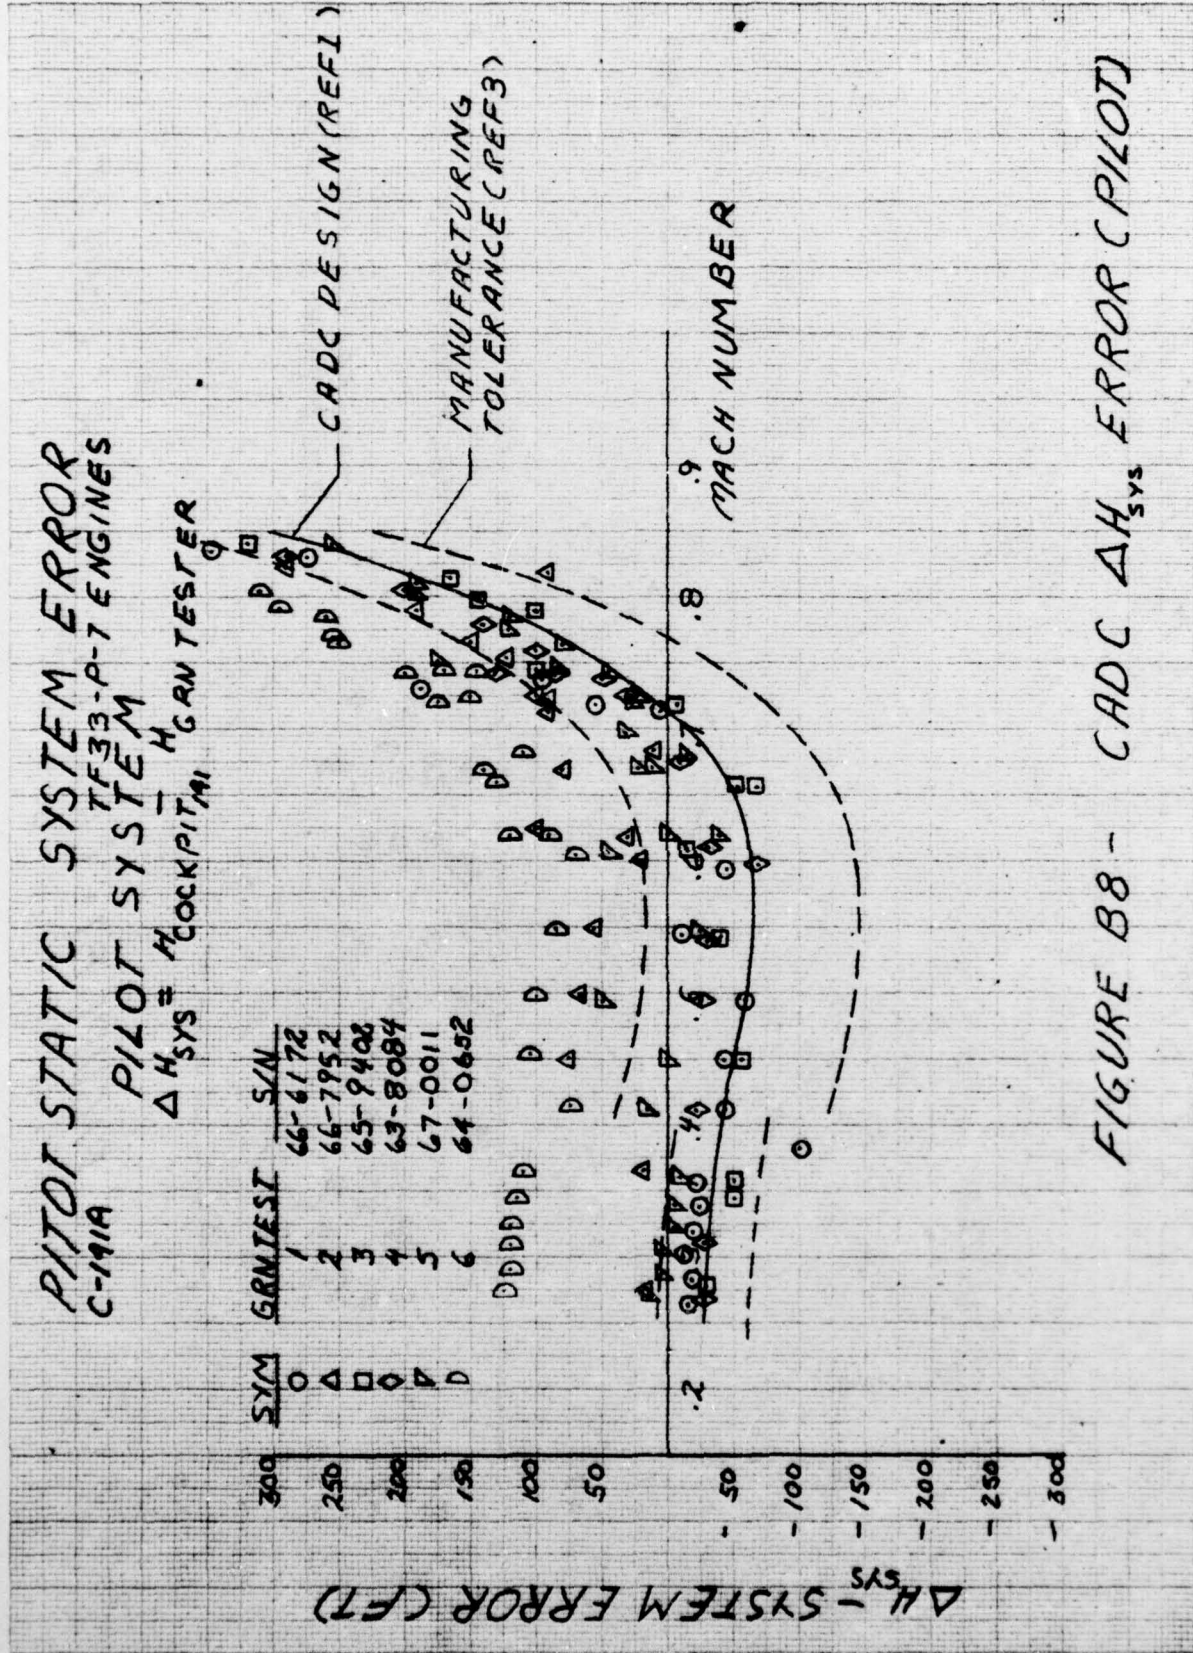 PITOT STATIC SYSTEM ERROR
C-141A TF33-P-7 ENGINES
PILOT SYSTEM
ΔH SYS = H COCKPIT M1 - H GRN TESTER
SYM GRNTEST S/N
○ 1 66-6172
△ 2 66-7952
□ 3 65-9402
◇ 4 63-8084
▽ 5 67-0011
D 6 64-0652
CADC DESIGN (REF1)
MANUFACTURING
TOLERANCE (REF3)
300
250
200
150
100
50
- 50
- 100
- 150
- 200
- 250
- 300
.2 .4 .5 .6 .7 .8 .9
MACH NUMBER
ΔH SYS - SYSTEM ERROR (FT)
FIGURE B8 - CADC ΔH SYS ERROR (PILOT)